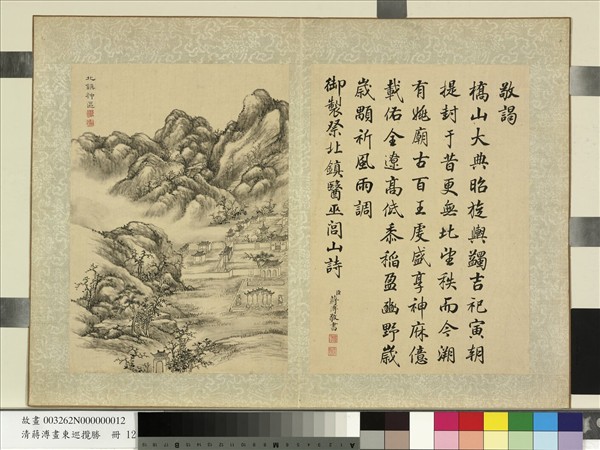 敬謁
橋山大典昭旋輿蠲吉祀寅朝
提封于昔更無比望秩而今溯
有姚廟古百王虔盛享神庥億
載佑全遼高低黍稻盈豳野歲
歲顒祈風雨調
御製祭北鎮醫巫閭山詩
臣蔣溥敬書
北鎮神區
故畫 003262N000000012
清蔣溥畫東巡攬勝 冊 12